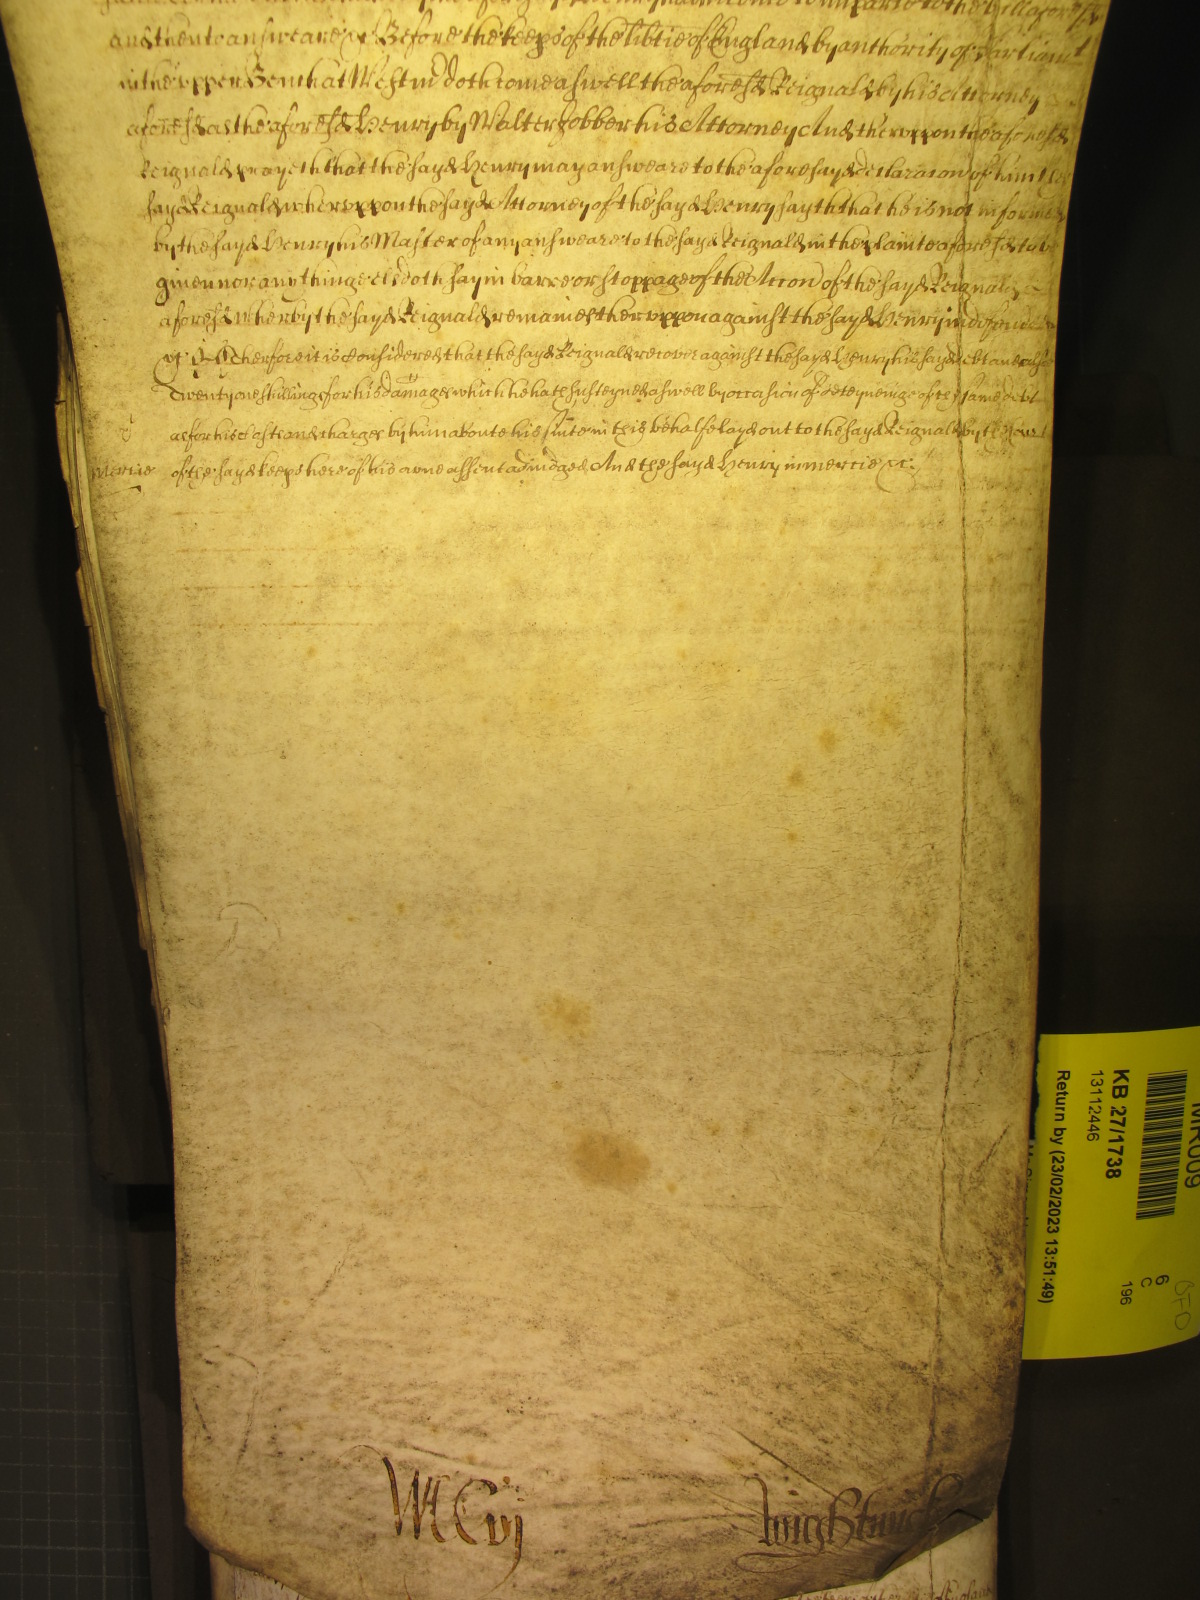 and then to answeare &c Before the keeps of the libtie of England by authority of Parliamt
in the upper Bench at Westmr doth come aswell the aforesd Reignald by his Attorney
aforesd as the aforesd Henry by Walter Jobber his Attorney And theruppon the aforesd
Reignald prayeth that the sayd Henry may answeare to the aforesayd declaracon of him the
sayd Reignald wheruppon the sayd Attorney of the sayd Henry sayth that he is not informed
by the sayd Henry his Master of any answeare to the sayd Reignald in the plainte aforesd to be
given nor any thinge els doth say in barre or stoppage of the Accon of the sayd Reignald
aforesd wherby the sayd Reignald remaines theruppon against the sayd Henry
Therfore it is Considered that the sayd Reignald recover against the sayd Henry his sayd debt and also
Twenty one shillings for his damages which he hath susteyned aswell by occasion of deteyneinge of the same debt
as for his Costs and charges by him aboute his suite in this behalfe layd out to the sayd Reignald by the Court
mercie of the sayd keeps here of his owne assent adiudged And the sayd Henry in mercie &c:
KB 27/1738
13112446
Return by (23/02/2023 13:51:49)
MR009
6
C
196
M Cvj